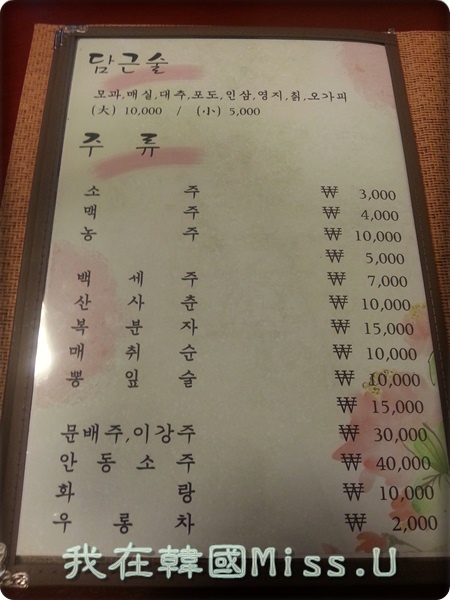 담근술
모과,매실,대추,포도,인삼,영지,칡,오가피
(大) 10,000 / (小) 5,000
주 류
소 주 ₩ 3,000
맥 주 ₩ 4,000
농 주 ₩ 10,000
₩ 5,000
백 세 주 ₩ 7,000
산 사 춘 ₩ 10,000
복 분 자 ₩ 15,000
매 취 순 ₩ 10,000
뽕 잎 술 ₩ 10,000
₩ 15,000
문배주,이강주 ₩ 30,000
안 동 소 주 ₩ 40,000
화 랑 ₩ 10,000
우 롱 차 ₩ 2,000
我在韓國Miss.U